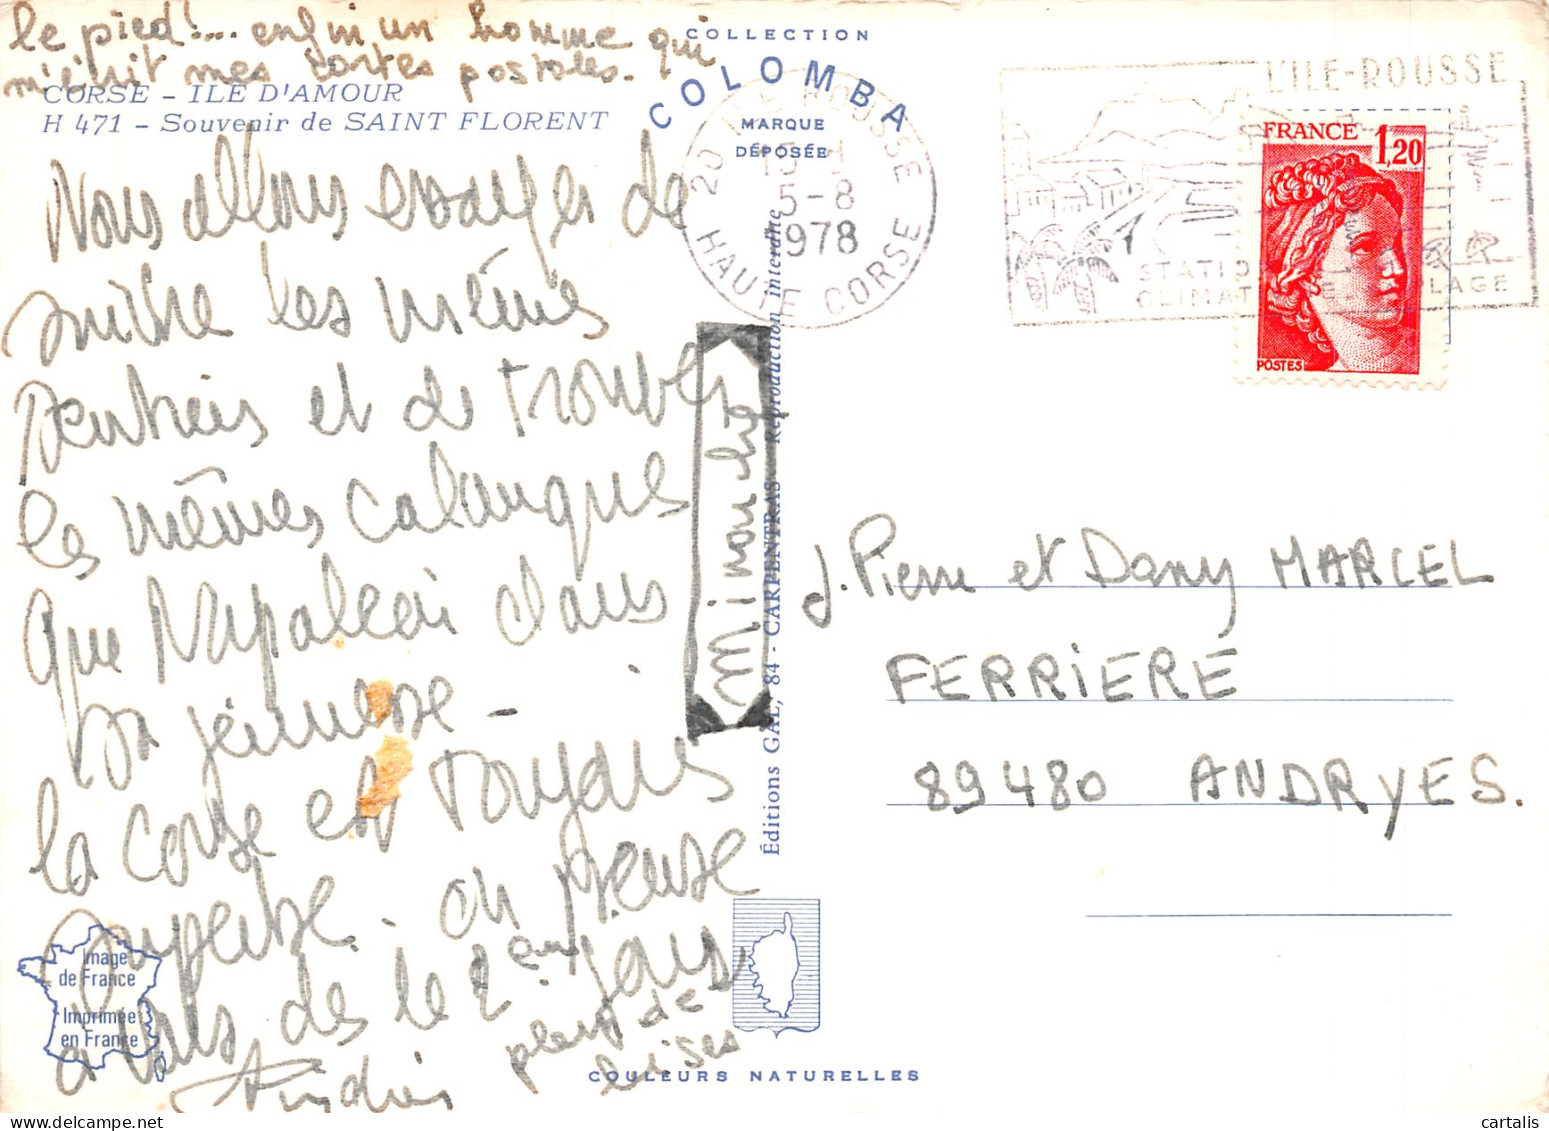 le pied!... enfin un homme qui
m'écrit mes cartes postales.
CORSE - ILE D'AMOUR
H 471 - Souvenir de SAINT FLORENT
Nous allons essayer de
suivre les mêmes
sentiers et de trouver
les mêmes calanques
que Napoléon dans
sa jeunesse -
la Corse est toujours
superbe. on pense
à vous dès le 2ème jour
plein de
bises
COLLECTION
COLOMBA
MARQUE
DÉPOSÉE
20 ILE ROUSSE
5-8
1978
HAUTE CORSE
L'ILE-ROUSSE
PLAGE
FRANCE
1,20
POSTES
Éditions GAL, 84 - CARPENTRAS - Reproduction interdite
J. Pierre et Dany MARCEL
FERRIERE
89480 ANDRYES.
Image
de France
Imprimée
en France
COULEURS NATURELLES
cartalis